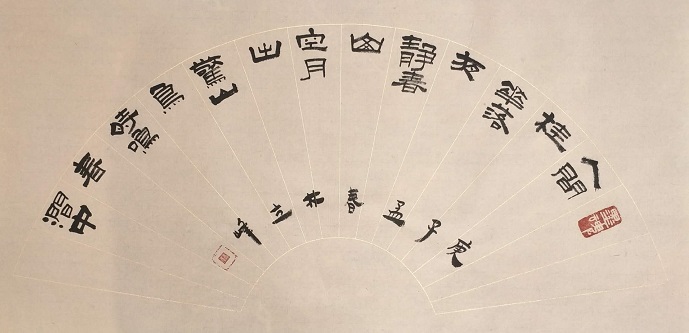 人間
桂
華落
夜
靜春
山
空月
出
驚山
鳥
時鳴
春
澗中
庚子孟春林立峰